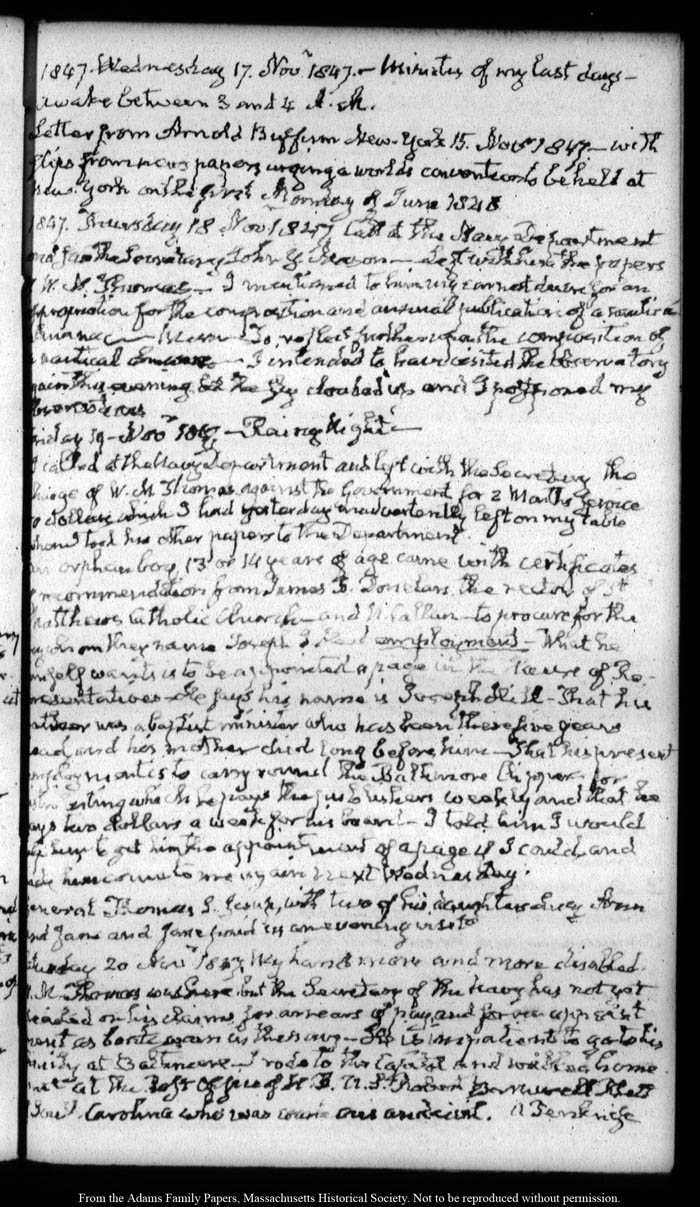 1847. Wednesday 17. Novr. 1847. — Minutes of my last days —
awake between 3 and 4 A.M.
Letter from Arnold Buffum New-York 15. Novr 1847 — with
slips from newspapers urging a worlds convention to be held at
New-York on the first Monday of June 1848
1847. Thursday 18 Novr 1847 at the Navy Department
and saw the Secretary John Y. Mason — left with him the papers
W. M. Thomas — I mentioned to him my earnest desire for an
appropriation for the composition and annual publication of a nautical
To reflect further upon the composition of
a nautical — I intended to have visited the observatory
again this evening but the sky clouded up and I postponed my
Friday 19 — Novr 1847, — Rainy Night —
I called at the Navy Department and left with the Secretary the
charge of W. M. Thomas against the Government for 2 Months Service
dollars which I had yesterday inadvertently left on my table
when I took his other papers to the Department.
an orphan boy, 13 or 14 years of age came with certificates
recommendation from James B. Donelan, the rector of St
Matthews Catholic Church — and — to procure for the
whom they name Joseph employment — What he
himself wants is to be appointed a page in the House of Re-
presentatives — He says his name is Joseph — That his
father was a baptist minister who has been there five years
dead, and his mother died long before him — That his present
employment is to carry round the Baltimore Clipper, for
which he pays the publishers weekly and that he
pays two dollars a week for his board — I told him I would
try to get him the appointment of a page if I could, and
bade him come to me again next Wednesday.
General Thomas S. Jesup, with two of his daughters Lucy Ann
and Jane and Jane paid us an evening visit
Saturday 20 Novr 1847. My hand more and more disabled.
W. M. Thomas was here but the Secretary of the Navy has not yet
decided on his claims for arrears of pay and for
as in the navy — He is impatient to go to his
family at Baltimore — I rode to the Capitol and walked home
met at the Post Office of H. R. U.S. Robert Barnwell Rhett
South Carolina who was and civil.
From the Adams Family Papers, Massachusetts Historical Society. Not to be reproduced without permission.